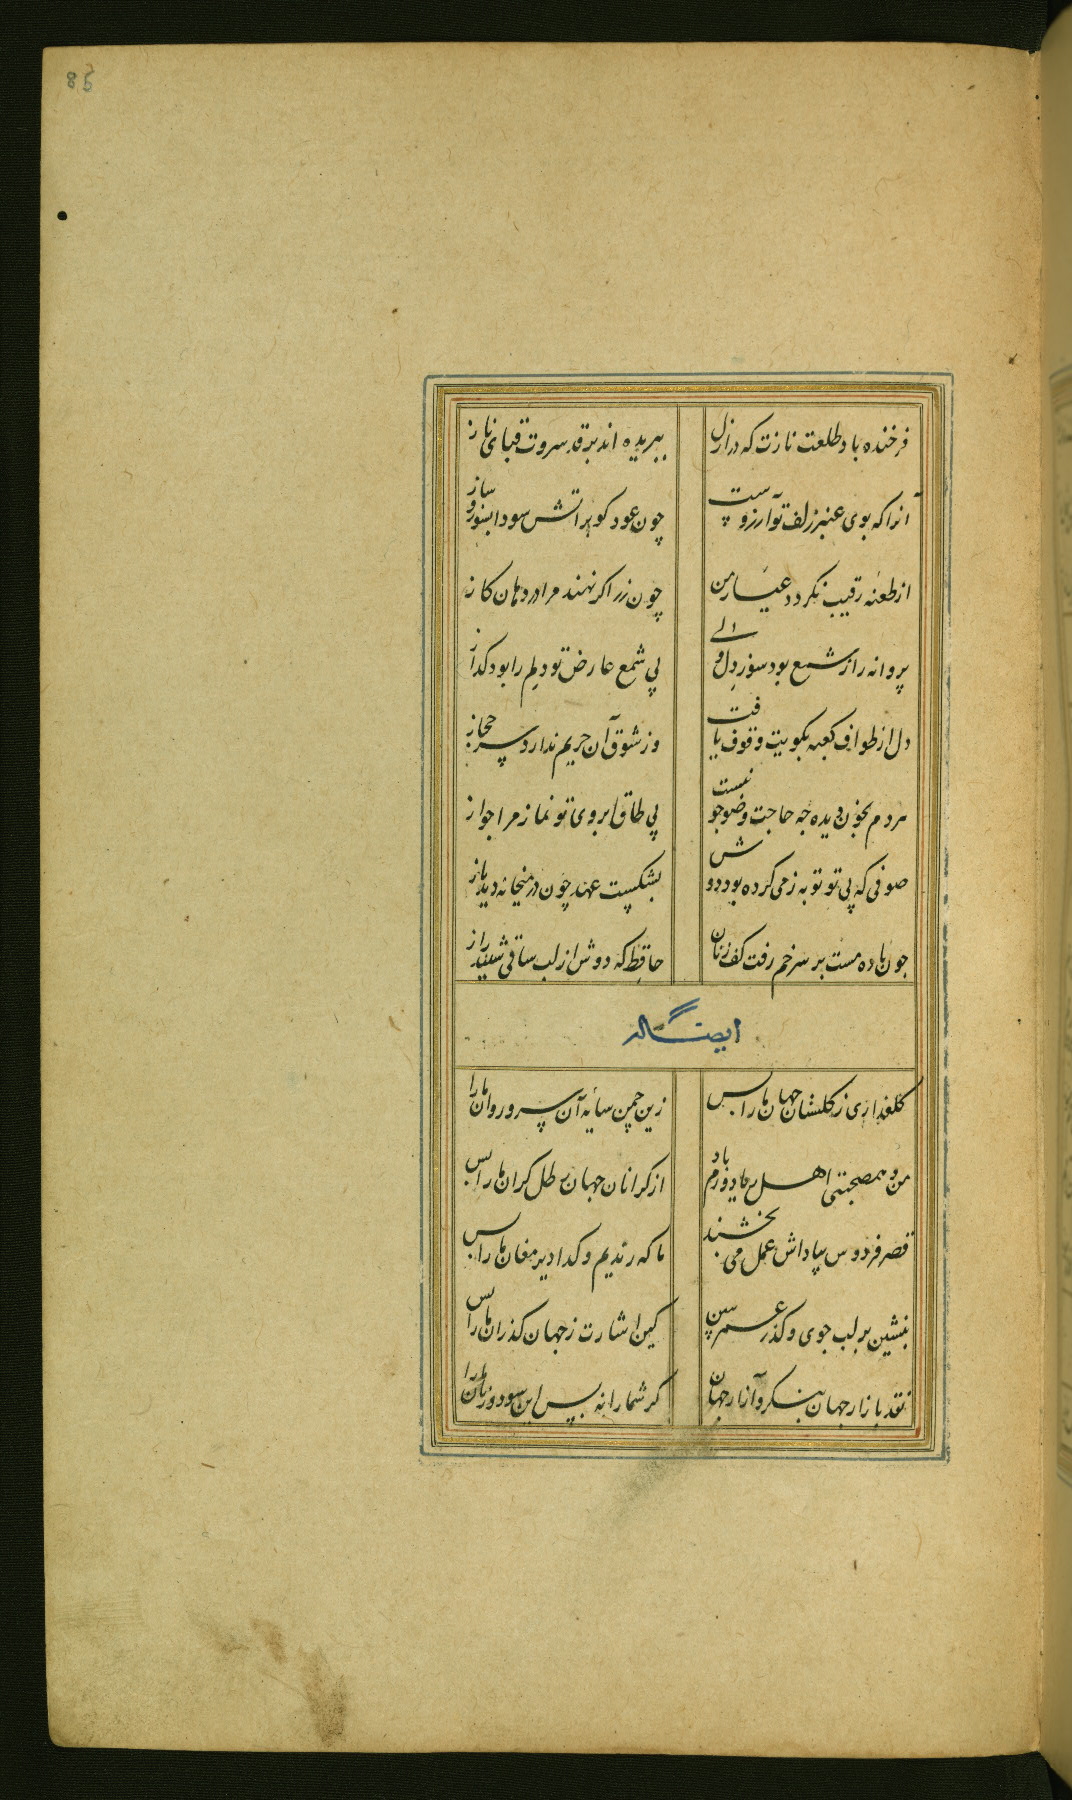 85
فرخنده باد طلعت نازت که در ازل
ببریده اند بر قد سروت قبای ناز
آنرا که بوی عنبر زلف تو آرزوست
چون عود کو بر آتش سودا بسوز و ساز
از طعنه رقیب نکردد عیار من
چون زر اکر نهند مرا در دهان کاز
پروانه را ز شمع بود سوز دل ولی
بی شمع عارض تو دلم را بود کداز
دل از طواف کعبه بکویت وقوف یافت
وز شوق آن حریم ندارد سر حجاز
هر دم بخون دیده چه حاجت وضو چو نیست
بی طاق ابروی تو نماز مرا جواز
صوفی که بی تو توبه ز می کرده بود دوش
بشکست عهد چون در میخانه دید باز
چون باده مست بر سر خم رفت کف زنان
حافظ که دوش از لب ساقی شنید راز
ایضا له
کلعذاری ز کلستان جهان ما را بس
زین چمن سایه آن سرو روان ما را
من و همصحبتی اهل ریا دورم باد
از کرانان جهان رطل کران ما را بس
قصر فردوس بپاداش عمل می بخشند
ما که رندیم و کدا دیر مغان ما را بس
بنشین بر لب جوی و کذر عمر ببین
کین اشارت ز جهان کذران ما را بس
نقد بازار جهان بنکر و آزار جهان
کر شما را نه بس این سود و زیان ما را